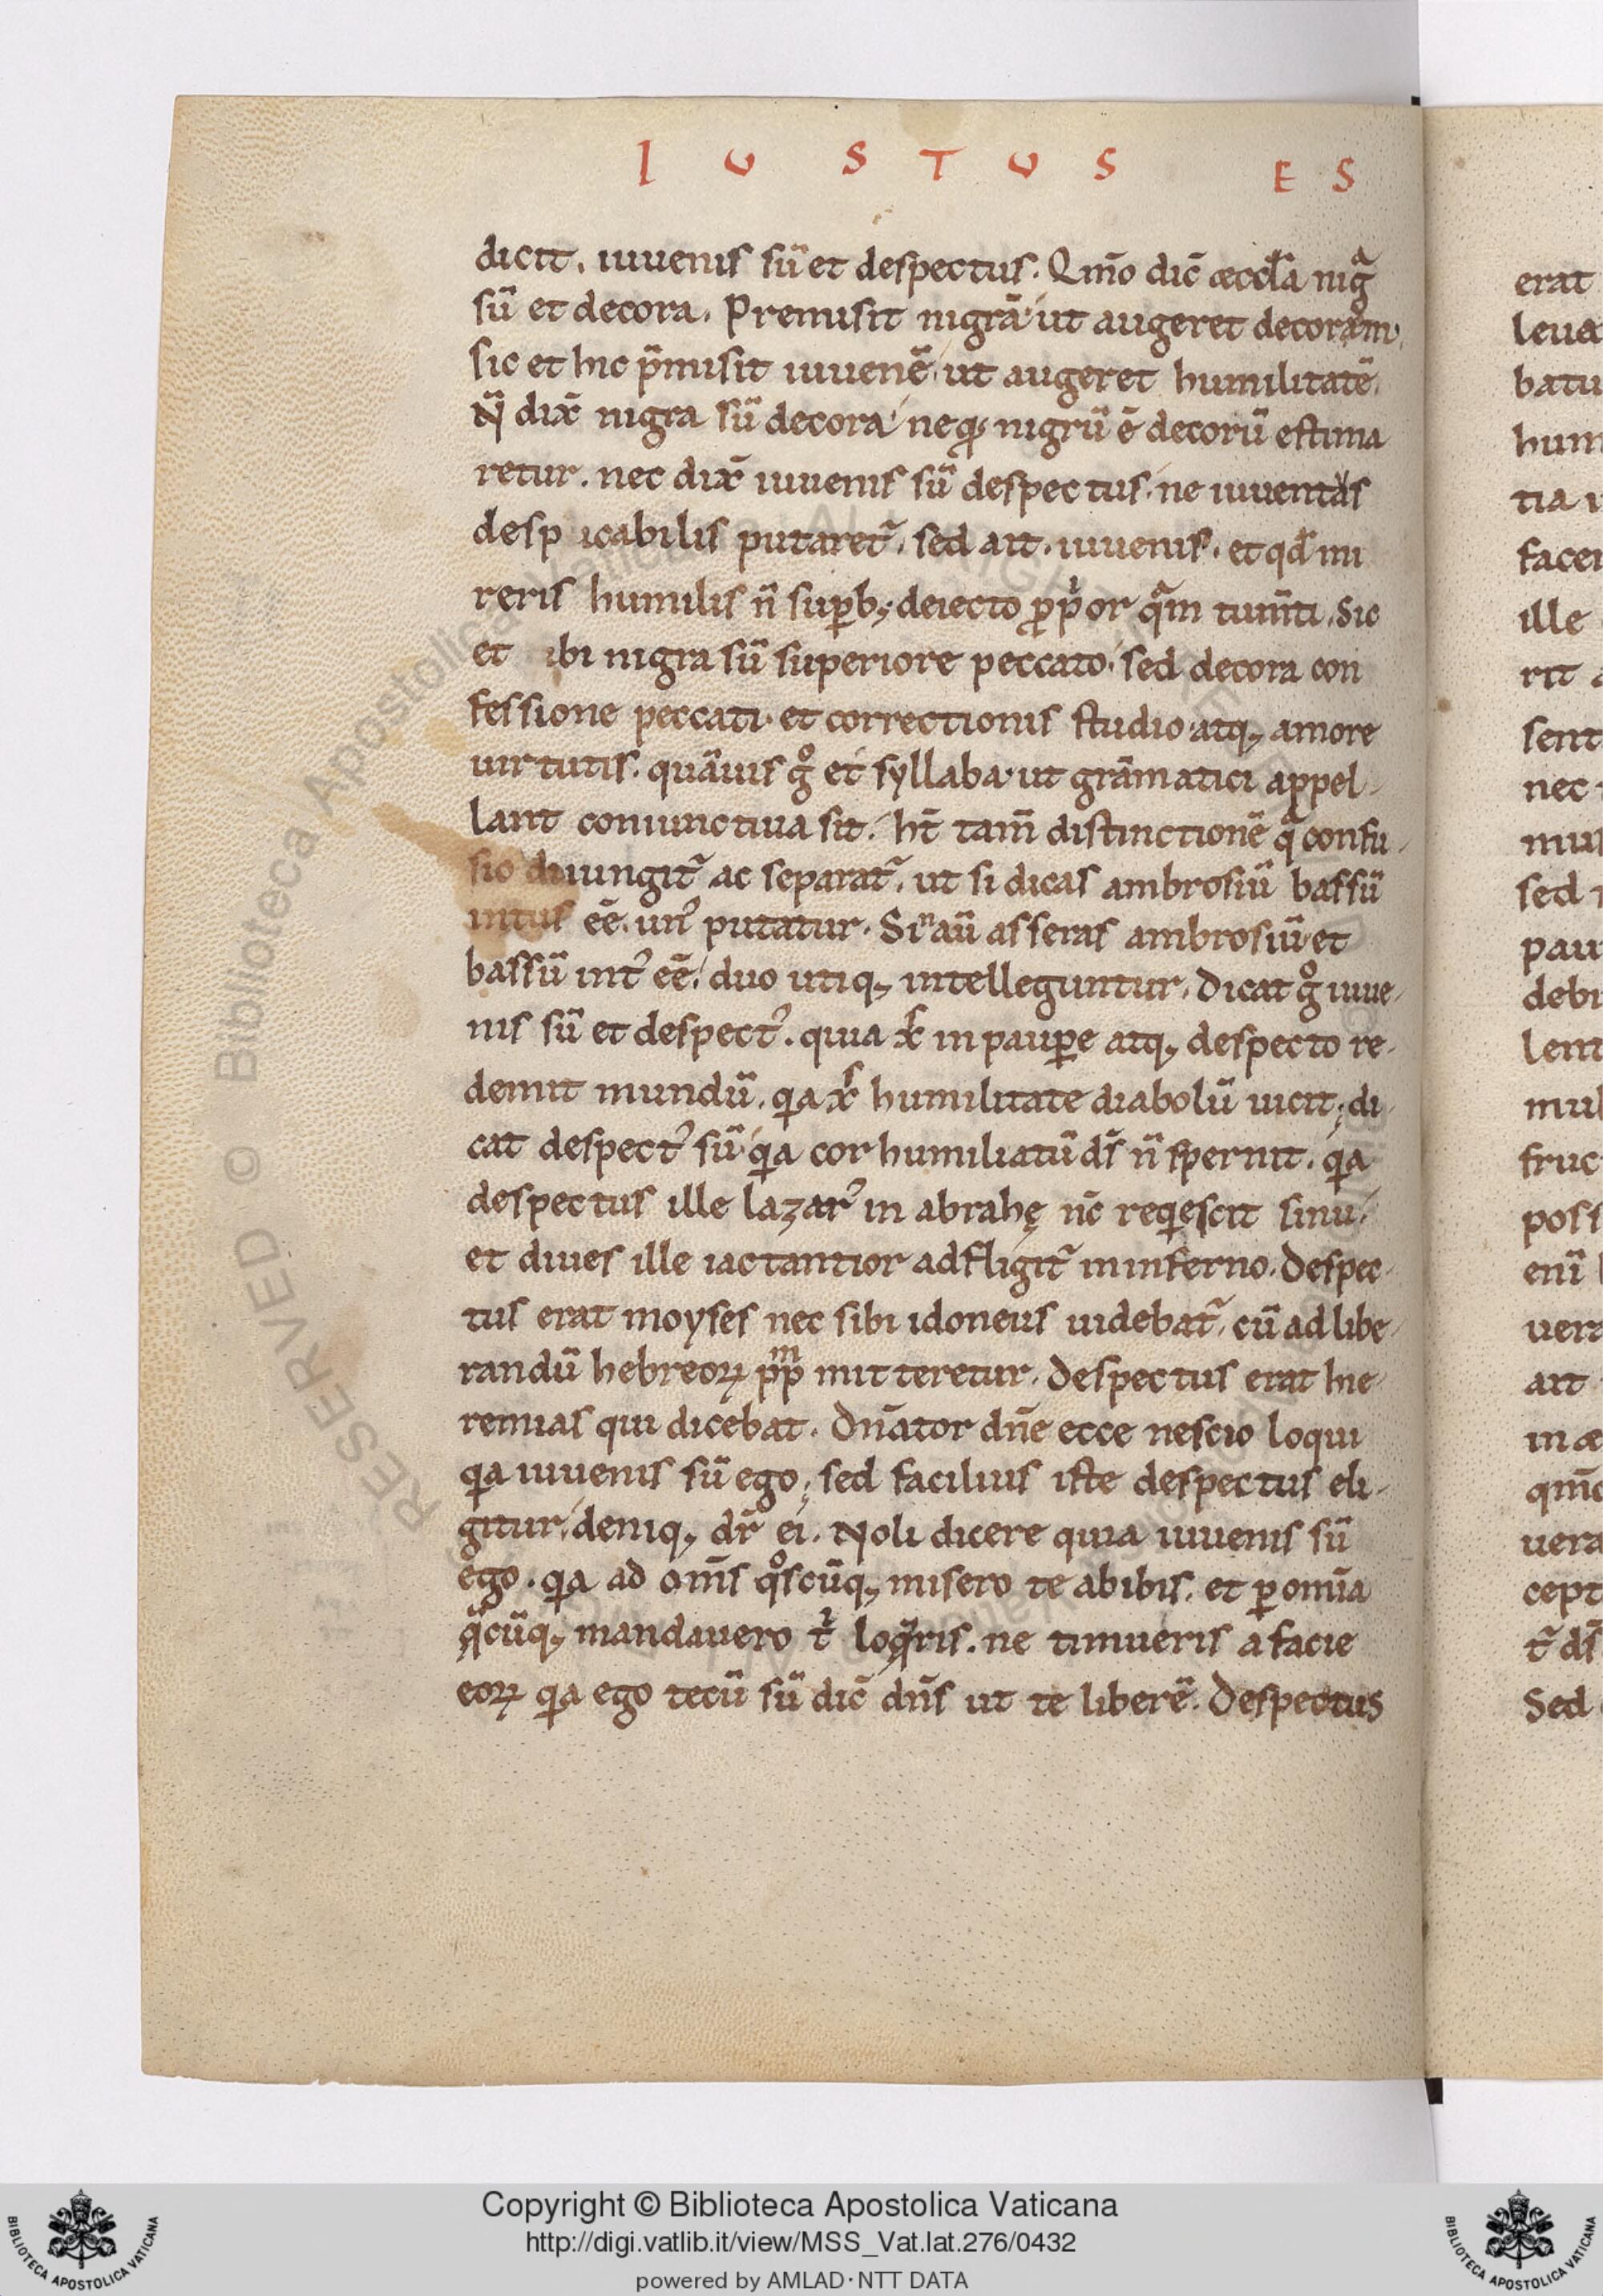 I U S T U S E S
dicit. iuuenis sū et despectus. Qm̄o dic̄ æccl̄a nigͣ
sū et decora. Premisit nigrā ut augeret decoram.
sic et hic p̄misit iuuenē ut augeret humilitatē.
Nͣ dix̄ nigra sū decora neq; nigrū ē decorū estima
retur. nec dix̄ iuuenis sū despectus. ne iuuentas
desp icabilis putaret᷑. sed ait. iuuenis. et qd̄ mi
reris humilis n̄ suꝑb; deiecto ꝓpͥor qͣm tum̄ti. Sic
et ibi nigra sū superiore peccato. sed decora con
fessione peccati. et correctionis studio. atq; amore
uirtutis. quāuis gͦ et syllaba ut grāmatici appel-
lant coniunctiua sit. ht̄ tam̄ distinctionē qͣ confu-
sio diiungit᷑ ac separat᷑. ut si dicas ambrosiū bassū
intus eē. unꝰ putatur. Sin aū asseras ambrosiū et
bassū intꝰ eē. duo utiq; intelleguntur. Dicat gͦ iuue-
nis sū et despectꝰ. quia xp̄s in pauꝑe atq; despecto re-
demit mundū. qia xp̄s humilitate diabolū uicit; di-
cat despectꝰ sū qia cor humiliatū ds̄ n̄ spernit. qia
despectus ille lazarꝰ in abrahę nc̄ reqiescit sinu.
et diues ille iactantior adfligit᷑ in inferno. Despec-
tus erat moyses nec sibi idoneus uidebat᷑. cū ad libe-
randū hebreoꝝ ppͫ mitteretur. Despectus erat hie-
remias qui dicebat. Dn̄ator dn̄e ecce nescio loqui
qia iuuenis sū ego; sed facilius iste despectus eli-
gitur. deniq; dr̄ ei. Noli dicere quia iuuenis sū
ego. qia ad om̄s qͦscūq; misero te abibis. et ꝑ omīa
qͣcūq; mandauero tͥ loqͣris. ne timueris a facie
eoꝝ qia ego tecū sū dic̄ dn̄s ut te liberē. Despectus
erat
leua
batu
hum
tia
facer
ille
rit
sent
nec
mul
sed
pau
debi
lent
mul
fruc
poss
enī
uera
ait
in æ
qm̄o
uera
cept
t᷑ ds̄
Sed
RESERVED © Biblioteca Apostolica Vaticana. ALL RIGHTS RESERVED © Biblioteca Apostolica Vaticana. ALL RIGHTS
Copyright © Biblioteca Apostolica Vaticana
http://digi.vatlib.it/view/MSS_Vat.lat.276/0432
powered by AMLAD·NTT DATA
BIBLIOTECA APOSTOLICA VATICANA
BIBLIOTECA APOSTOLICA VATICANA